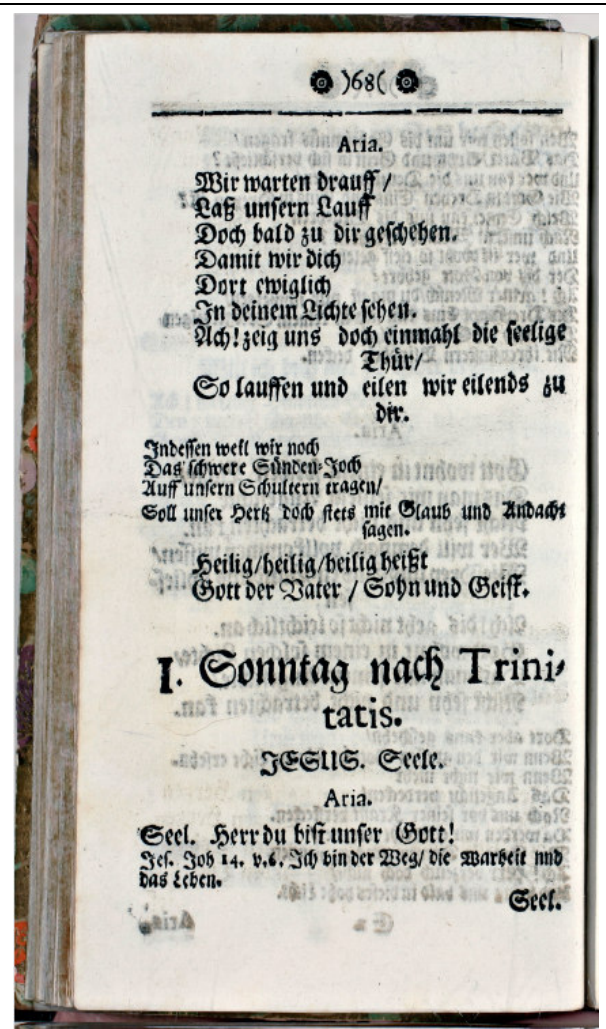 )68(
Aria.
Wir warten drauff /
Laß unsern Lauff
Doch bald zu dir geschehen.
Damit wir dich
Dort ewiglich
In deinem Lichte sehen.
Ach! zeig uns doch einmahl die seelige
Thür/
So lauffen und eilen wir eilends zu
dir.
Indessen weil wir noch
Das schwere Sünden-Joch
Auff unsern Schultern tragen/
Soll unser Hertz doch stets mit Glaub und Andacht
sagen.
Heilig/heilig/heilig heißt
Gott der Vater / Sohn und Geist.
I. Sonntag nach Trini-
tatis.
JESUS. Seele.
Aria.
Seel. Herr du bist unser Gott!
Jes. Joh 14. v.6. Ich bin der Weg/ die Warheit nnd
das Leben.
Seel.